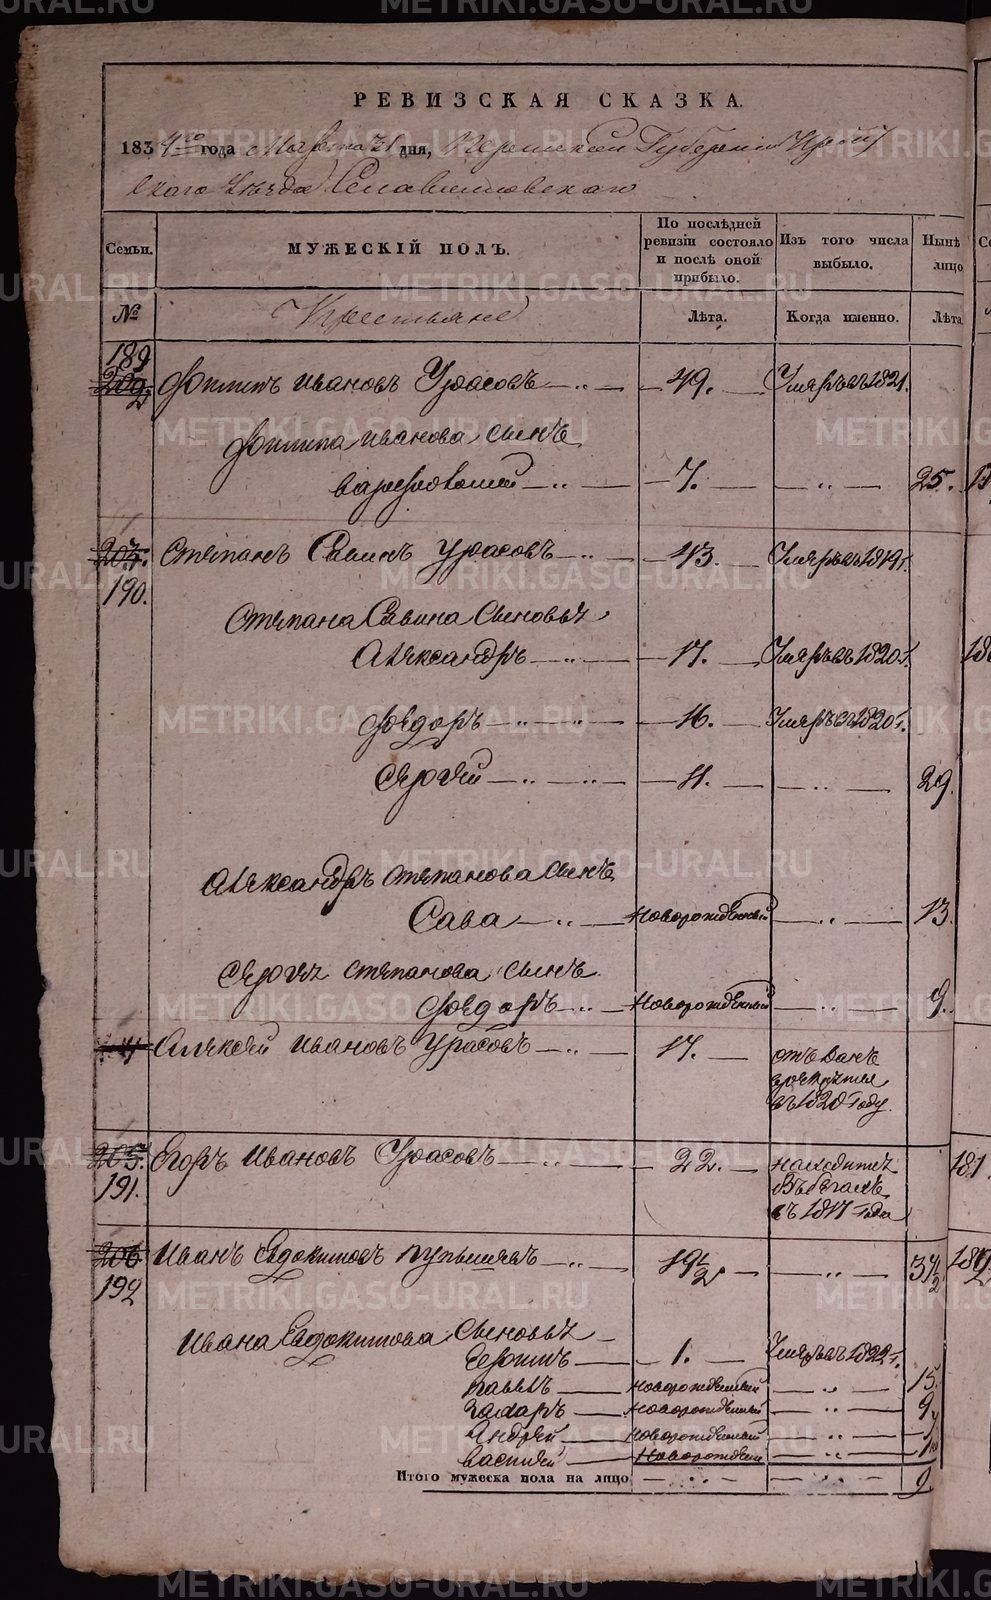 РЕВИЗСКАЯ СКАЗКА.
1834го года Марта 21 дня, Пермской Губернiи Ирбит
скаго Уѣзда
Семьи. МУЖЕСКІЙ ПОЛЪ. По послѣдней ревизіи состояло и послѣ оной прибыло. Изъ того числа выбыло. Нынѣ лицо
№ Крестьяне Лѣта. Когда именно. Лѣта
189 Филипъ Ивановъ Урасовъ — „ — 49. Умеръ въ 1821.
Филипа Иванова сынъ
Варфоломей — „ — 7. — „ — 25.
190. Степанъ Савинъ Урасовъ — „ — 43. Умеръ въ 1819 г.
Степана Савина сыновья
Александръ — „ — 17. Умеръ въ 1820 г.
Федоръ — „ — „ — 16. Умеръ въ 1820 г.
Сергѣй — „ — „ — 11. — „ — 29.
Александръ Степанова сынъ
Сава — „ — новорожденный — „ — 13.
Сергѣя Степанова сынъ
Федоръ — „ — новорожденный — „ — 9.
Алексѣй Ивановъ Урасовъ — „ — 17. отъ данъ
в рекруты
въ 1820 году.
205. Егоръ Ивановъ Урасовъ — „ — 22. находится
191. въ бегахъ
съ 1817 года
206 Иванъ Евдокимовъ Пупышевъ — „ — 19 1/2 — „ — 34 1/2
192
Ивана Евдокимова сыновья
— 1. — Умеръ въ 1822 г.
Павелъ — новорожденный — „ — 15.
Захаръ — новорожденный — „ — 9
Андрей — новорожденный — „ —
Василей — новорожден — „ —
Итого мужеска пола на лицо — „ — „ — 9
METRIKI.GASO-URAL.RU